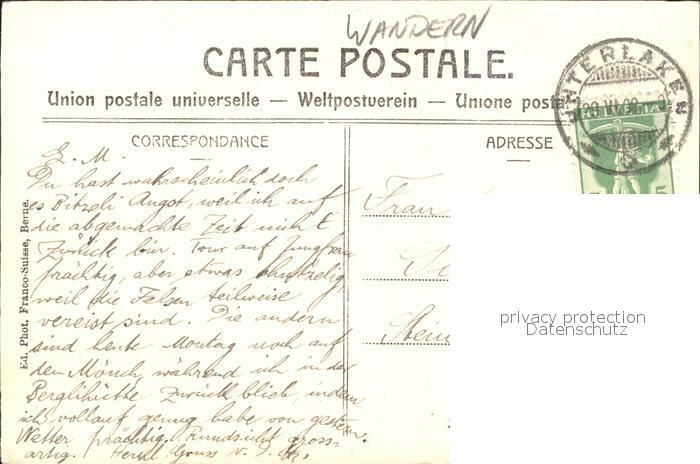 WANDERN
CARTE POSTALE.
Union postale universelle — Weltpostverein — Unione posta
INTERLAKEN
HELVETIA
5
CORRESPONDANCE
ADRESSE
L. M.
Du hast wahrscheinlich doch
es Bitzeli Angst, weil ich auf
die abgemachte Zeit nicht
Zurück bin. Tour auf Jungfrau
prächtig, aber etwas
weil die Felsen teilweise
vereist sind. Die andern
sind heute Montag noch auf
den Mönch, während ich in der
Berglihütte Zurück blieb, indem
ich vollauf genug habe von gestern.
Wetter prächtig. Rundsicht gross-
artig. Herzl. Gruss v. D.
Frau
Stein
Ed. Phot. Franco-Suisse, Berne.
privacy protection
Datenschutz